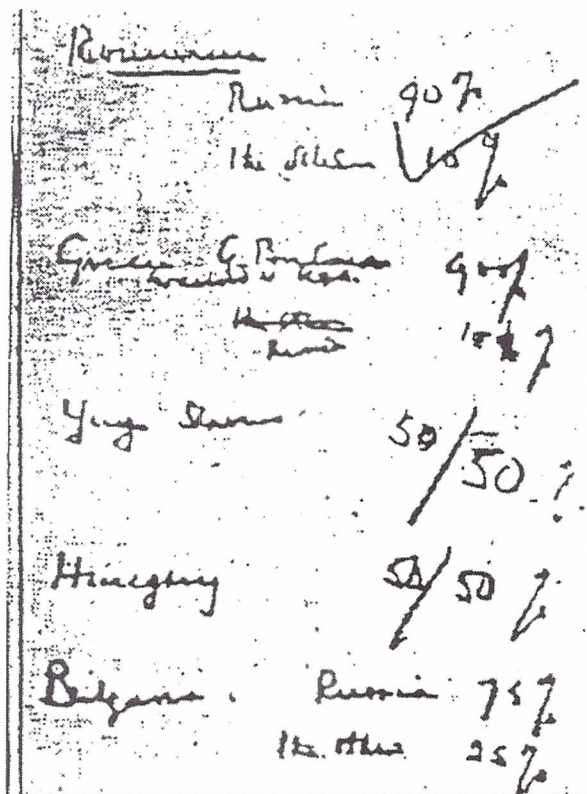 Roumania
Russia 90%
The others 10%
Greece G. Britain 90%
in accord with USA.
The others
Russia 10%
Yugo Slavia 50/50 %
Hungary 50/50 %
Bulgaria. Russia 75%
The others 25%